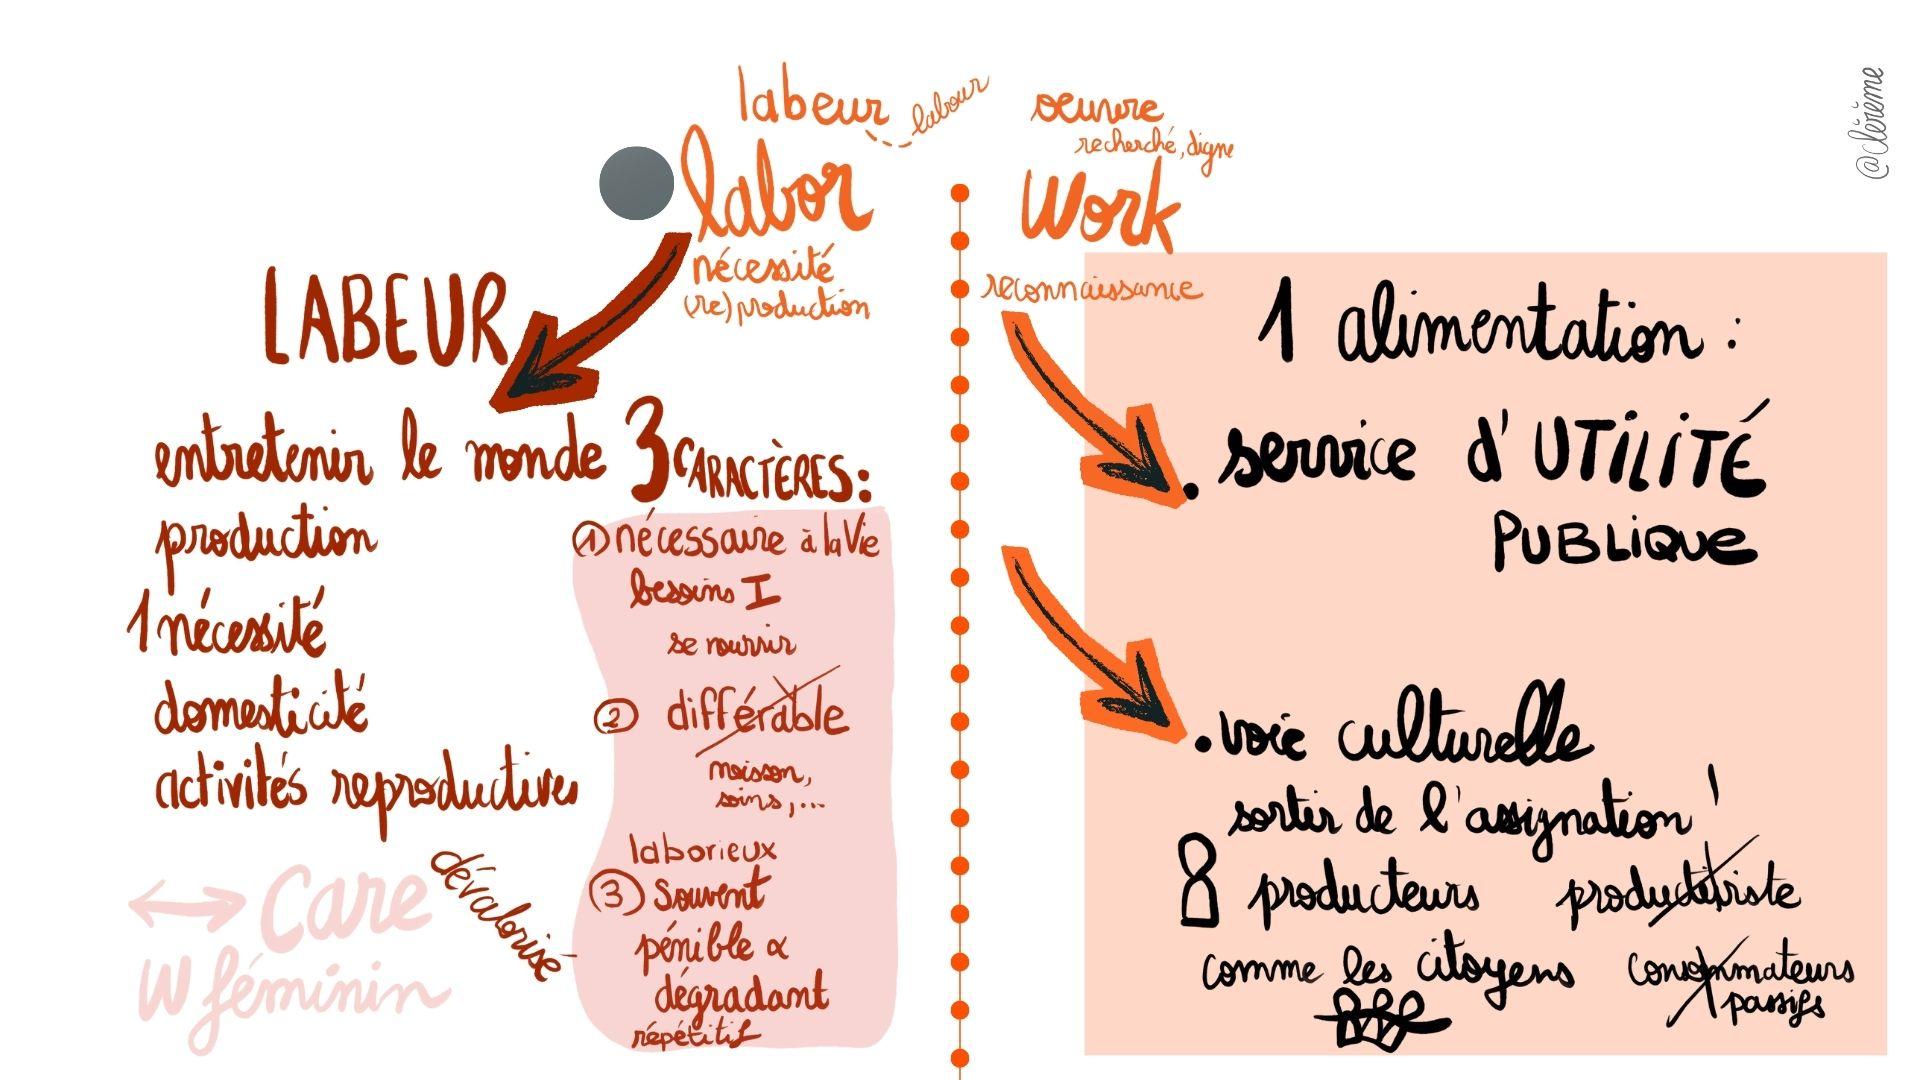 labeur labour
labor
nécessité
(re)production
oeuvre
recherché, digne
Work
reconnaissance
@clérême
LABEUR
entretenir le monde
production
1 nécessité
domesticité
activités reproductives
dévalorisé
Care
W féminin
3 CARACTÈRES:
① nécessaire à la Vie
besoins I
se nourrir
② différable
moisson,
soins,...
laborieux
③ Souvent
pénible &
dégradant
répétitif
1 alimentation :
. service d'UTILITÉ
PUBLIQUE
. voie culturelle
sortir de l'assignation !
producteurs productiviste
comme les citoyens consommateurs
passifs